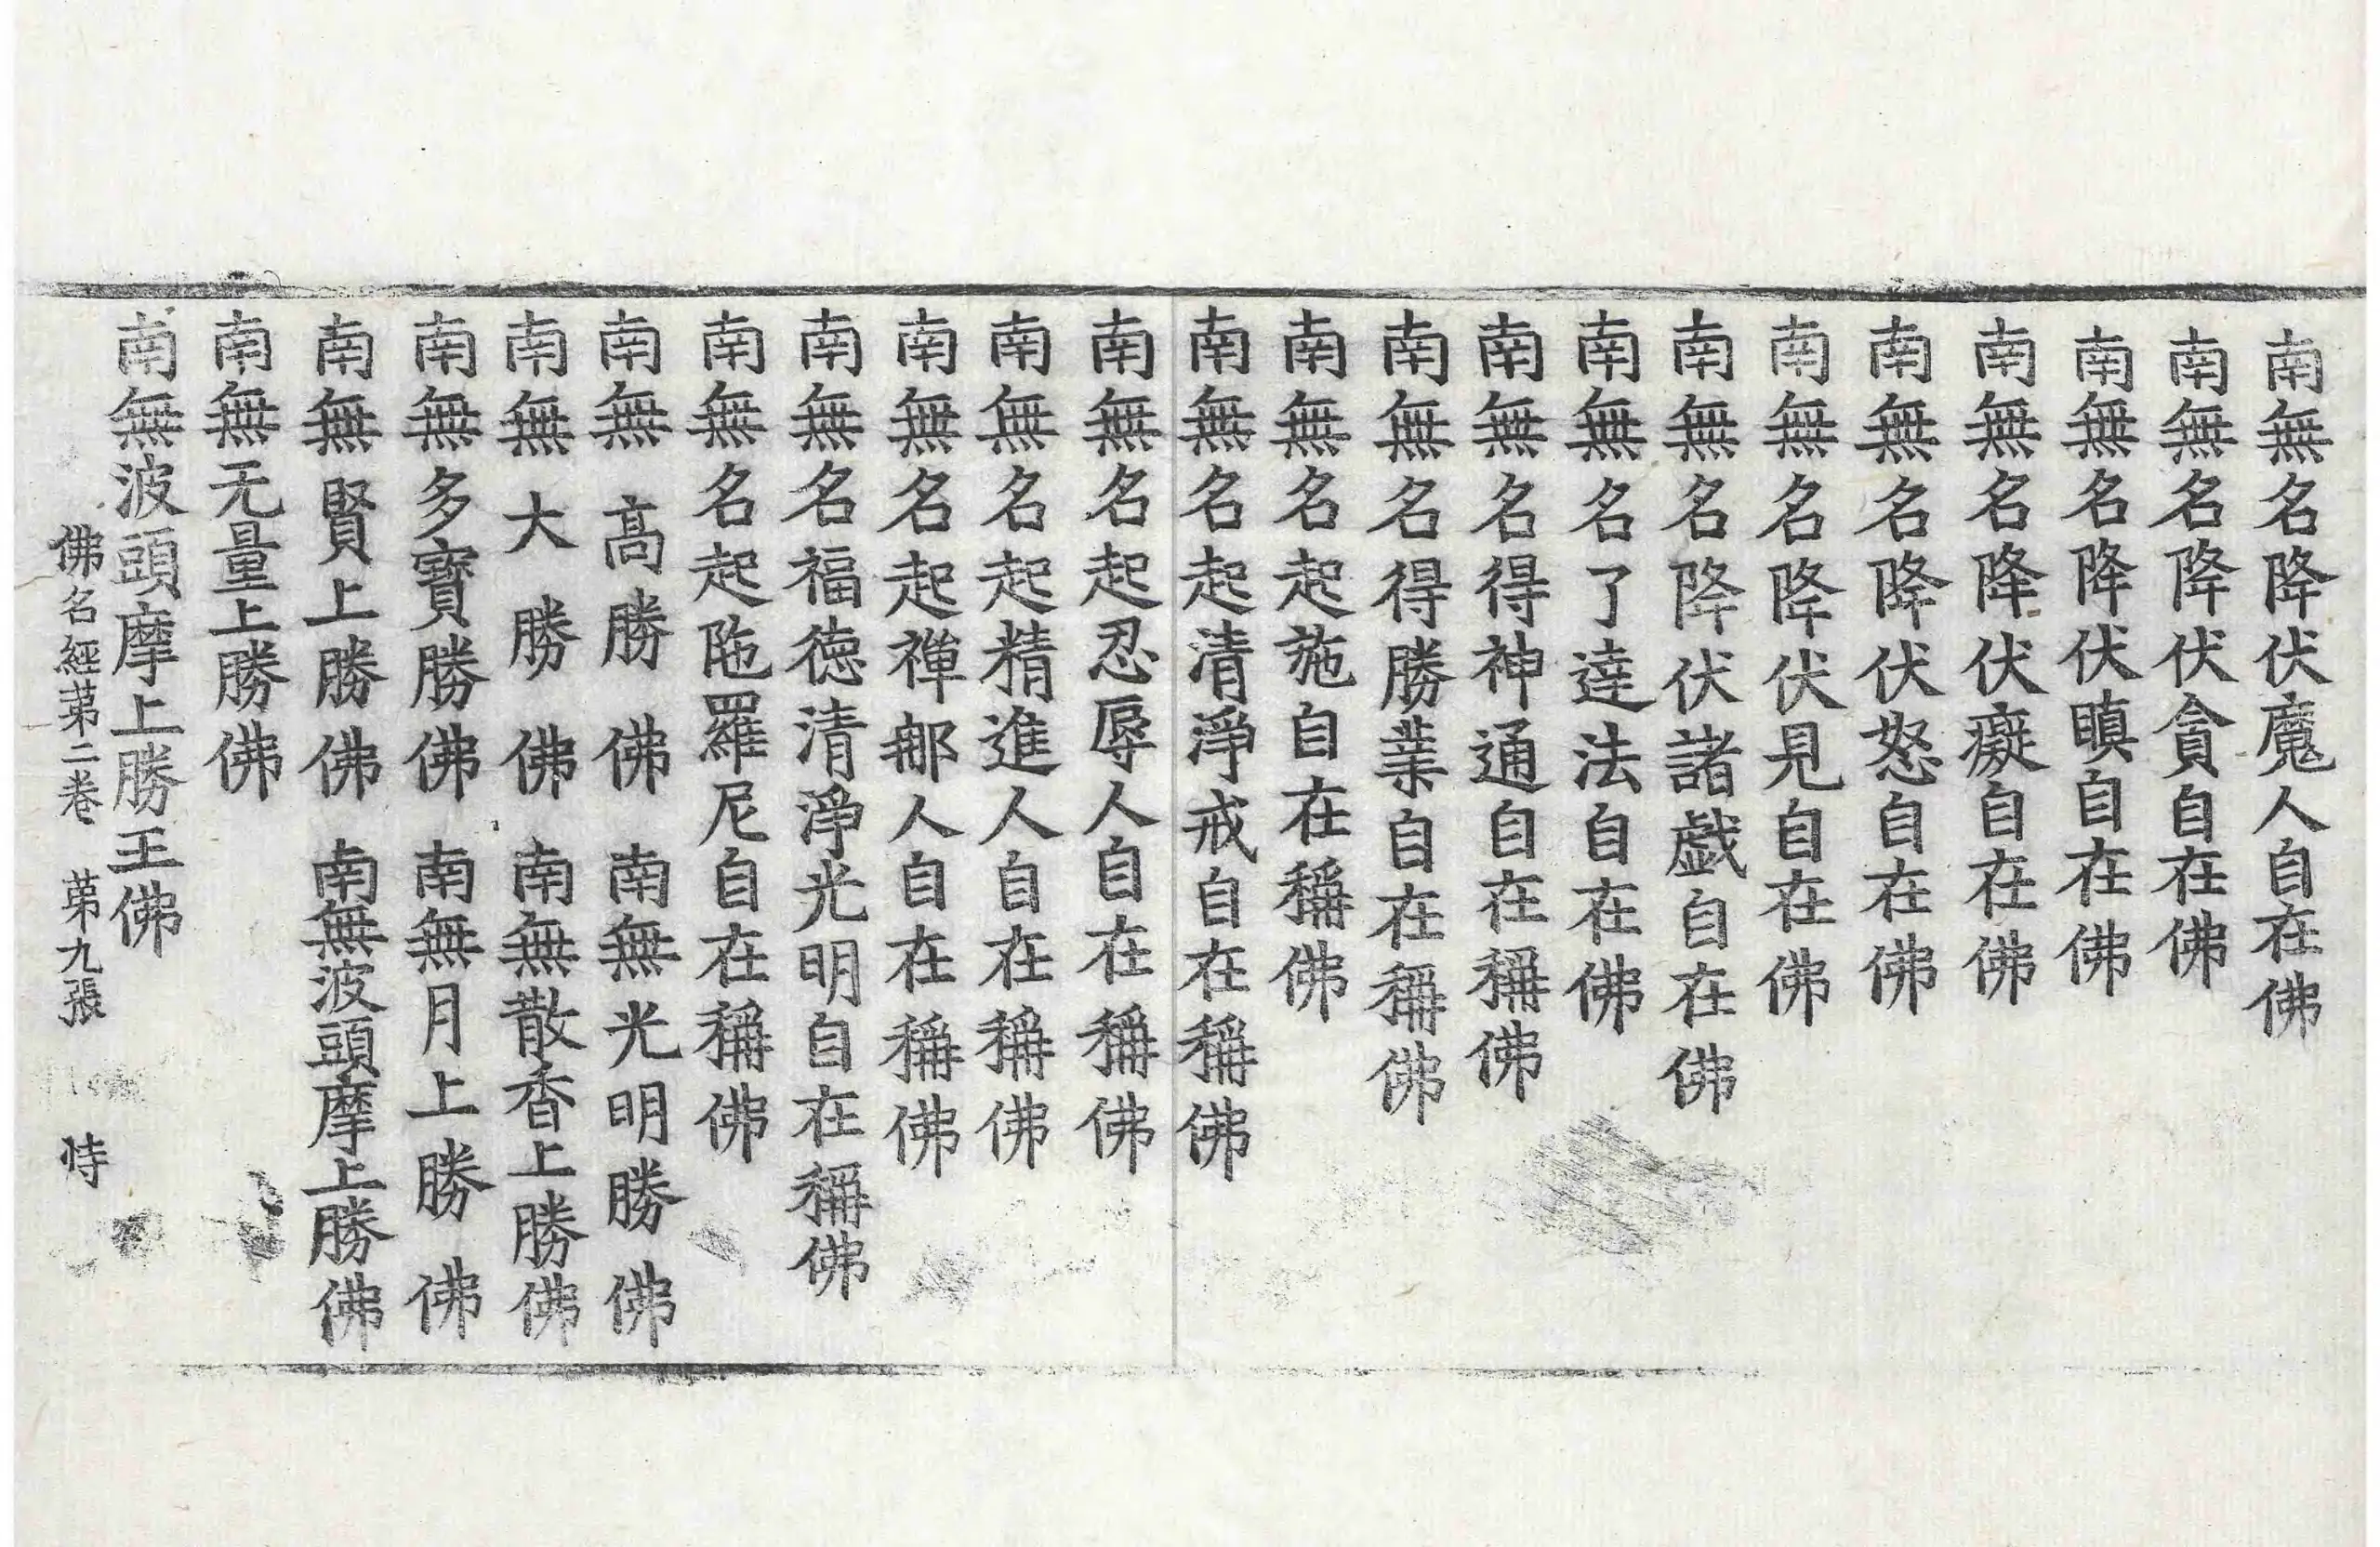 南無名降伏魔人自在佛
南無名降伏貪自在佛
南無名降伏瞋自在佛
南無名降伏癡自在佛
南無名降伏怒自在佛
南無名降伏見自在佛
南無名降伏諸戱自在佛
南無名了達法自在佛
南無名得神通自在稱佛
南無名得勝業自在稱佛
南無名起施自在稱佛
南無名起清淨戒自在稱佛
南無名起忍辱人自在稱佛
南無名起精進人自在稱佛
南無名起禪那人自在稱佛
南無名福徳清淨光明自在稱佛
南無名起陁羅尼自在稱佛
南無高勝佛 南無光明勝佛
南無大勝佛 南無散香上勝佛
南無多寶勝佛 南無月上勝佛
南無賢上勝佛 南無波頭摩上勝佛
南無无量上勝佛
南無波頭摩上勝王佛
佛名經苐二卷 苐九張 恃